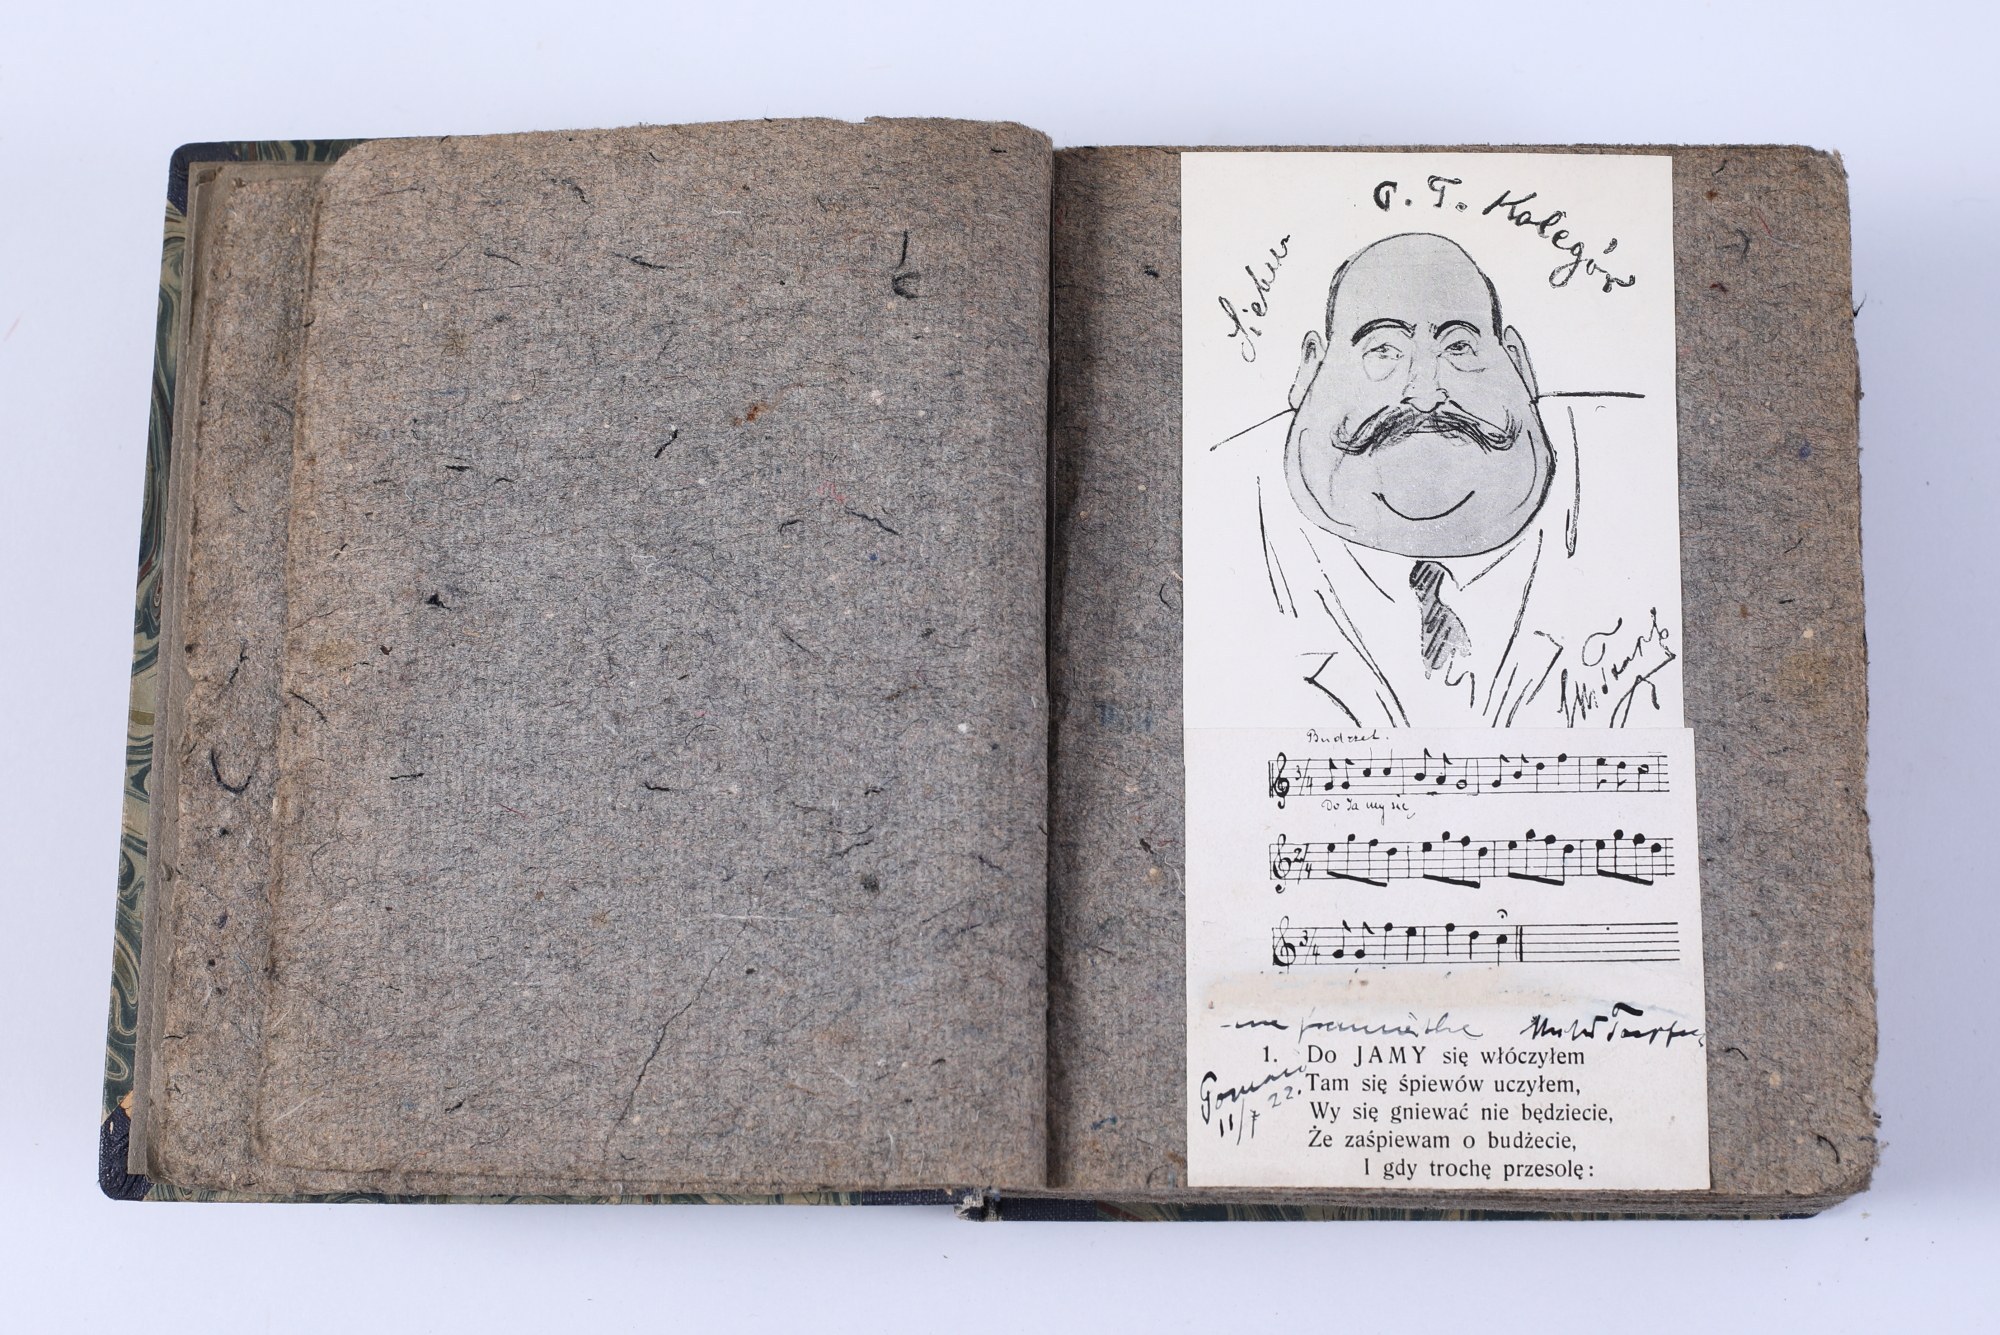 Sieben
C. T. Kolegów
Budżet.
3/4
Do Ja my się
2/4
3/4
na pamiątkę
1. Do JAMY się włóczyłem
Tam się śpiewów uczyłem,
Wy się gniewać nie będziecie,
Że zaśpiewam o budżecie,
I gdy trochę przesolę:
11/7 22.